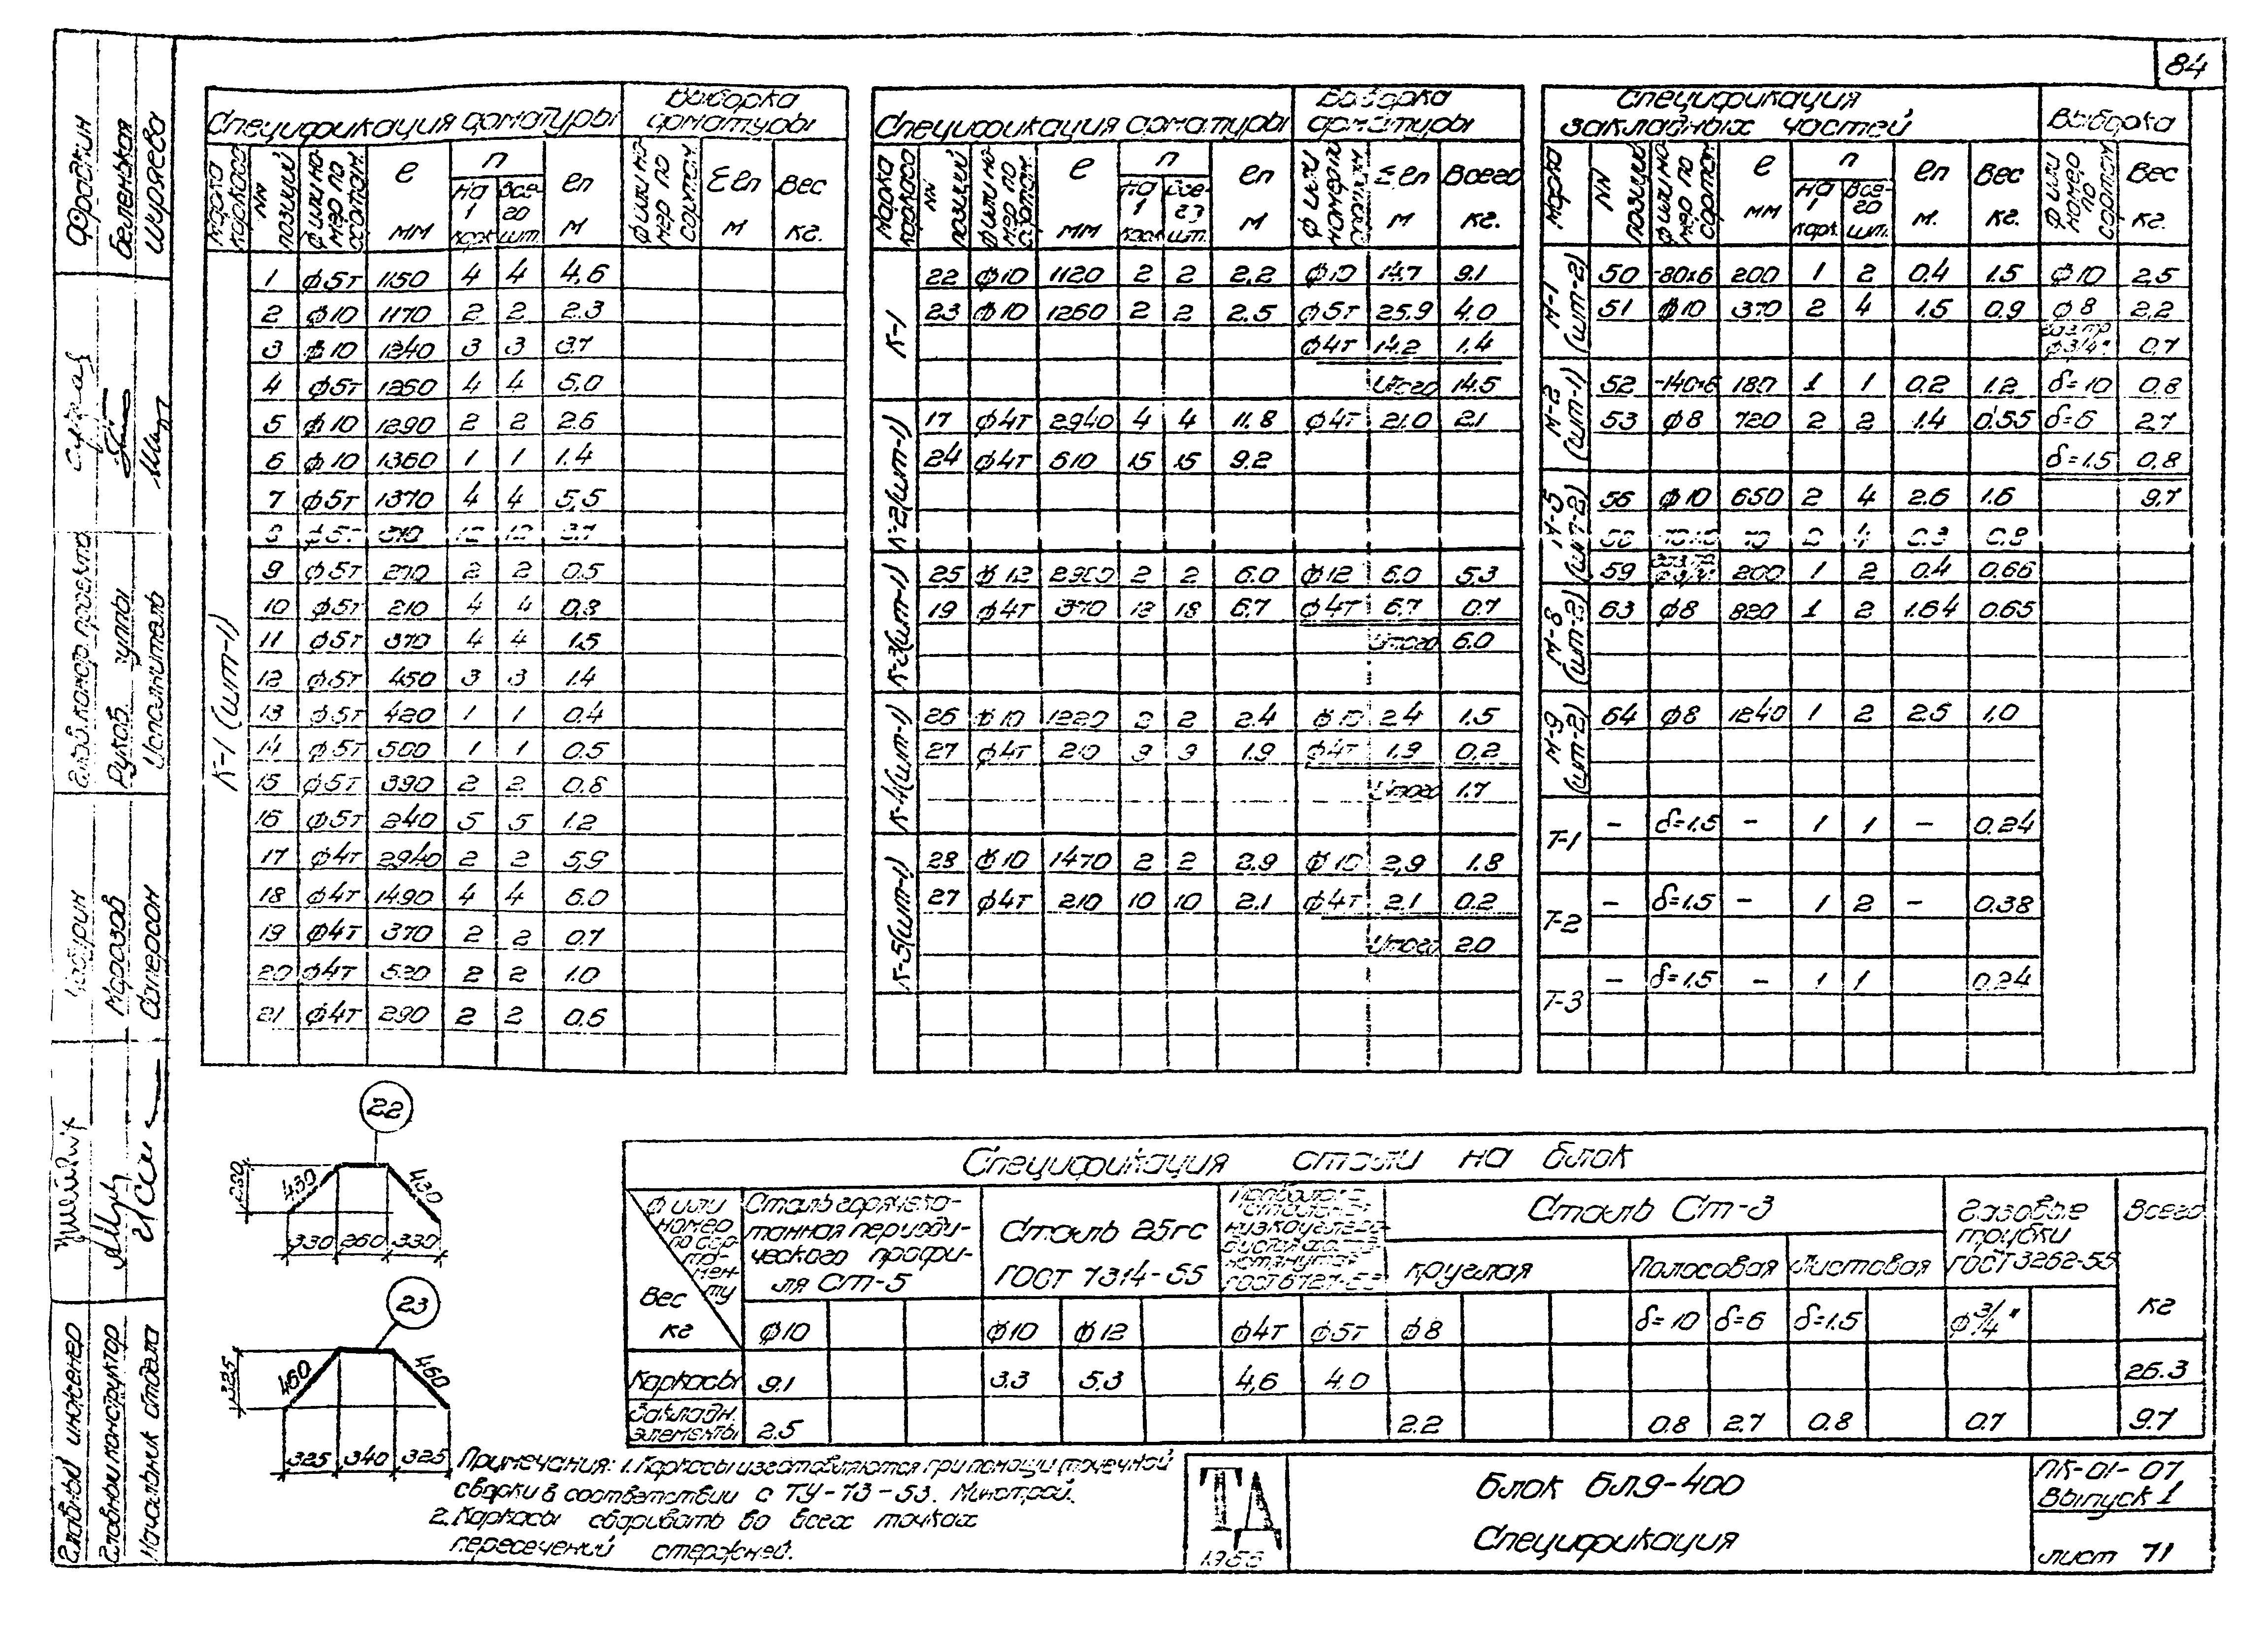 84
Спецификация арматуры
Выборка арматуры
Марка каркаса
NN позиций
ф или номер по сортам.
е мм
n
на 1 карк.
Всего шт.
en м
ф или номер по сортам.
Σ en м
Вес кг.
К-1 (шт-1)
1 ф5т 1150 4 4 4,6
2 ф10 1170 2 2 2.3
3 ф10 1240 3 3 3.7
4 ф5т 1260 4 4 5,0
5 ф10 1290 2 2 2.6
6 ф10 1360 1 1 1.4
7 ф5т 1370 4 4 5,5
8 ф5т 310 12 12 3.7
9 ф5т 270 2 2 0.5
10 ф5т 210 4 4 0,8
11 ф5т 370 4 4 1.5
12 ф5т 450 3 3 1.4
13 ф5т 420 1 1 0.4
14 ф5т 500 1 1 0.5
15 ф5т 390 2 2 0.8
16 ф5т 240 5 5 1.2
17 ф4т 2940 2 2 5,9
18 ф4т 1490 4 4 6.0
19 ф4т 370 2 2 0.7
20 ф4т 520 2 2 1.0
21 ф4т 290 2 2 0.6
Спецификация арматуры
Выборка арматуры
Марка каркаса
NN позиций
ф или номер по сортам.
е мм
n
на 1 карк.
Всего шт.
en м
ф или номер по сортам.
Σ en м
Всего кг.
К-1
22 ф10 1120 2 2 2,2 ф10 14.7 9.1
23 ф10 1260 2 2 2.5 ф5т 25.9 4.0
ф4т 14.2 1.4
Итого 14.5
К-2 (шт-1)
17 ф4т 2940 4 4 11.8 ф4т 21.0 2.1
24 ф4т 610 15 15 9.2
К-3 (шт-1)
25 ф12 2980 2 2 6.0 ф12 6.0 5.3
19 ф4т 370 18 18 6.7 ф4т 6.7 0.7
Итого 6.0
К-4 (шт-1)
26 ф10 1220 2 2 2.4 ф10 2.4 1.5
27 ф4т 210 9 9 1.9 ф4т 1.9 0,2
Итого 1.7
К-5 (шт-1)
28 ф10 1470 2 2 2.9 ф10 2,9 1.8
27 ф4т 210 10 10 2.1 ф4т 2.1 0.2
Итого 2.0
Спецификация закладных частей
Выборка
Марка
NN позиций
ф или номер по сортам
е мм
n
на 1 карк.
Всего шт.
en м.
Вес кг.
ф или номер по сортам
Вес кг.
М-1 (шт-2)
50 -80х6 200 1 2 0.4 1.5 ф10 2,5
51 ф10 370 2 4 1.5 0.9 ф8 2,2
ф3/4" 0,7
М-2 (шт-1)
52 -140х6 180 1 1 0.2 1.2 δ=10 0.8
53 ф8 720 2 2 1.4 0.55 δ=6 2.7
δ=1.5 0.8
М-5 (шт-2)
56 ф10 650 2 4 2.6 1.6 9.7
70 2 4 0.3 0.8
59 200 1 2 0.4 0.66
М-8 (шт-2)
63 ф8 820 1 2 1.64 0.65
М-9 (шт-2)
64 ф8 1240 1 2 2.5 1.0
Т-1 – δ=1.5 – 1 1 – 0.24
Т-2 – δ=1.5 – 1 2 – 0.38
Т-3 – δ=1.5 – 1 1 0.24
22
230
430
430
330 260 330
23
325
460
460
325 340 325
Спецификация стали на блок
ф или номер по сортаменту
Вес кг
Сталь горячекатанная периодического профиля Ст-5
Сталь 25гс
ГОСТ 7314-55
Сталь Ст-3
круглая
Полосовая
Листовая
Газовые трубки ГОСТ 3262-55
Всего кг
ф10 ф10 ф12 ф4т ф5т ф8 δ=10 δ=6 δ=1.5 ф3/4"
Каркасы 9.1 3.3 5.3 4,6 4.0 26.3
Закладн. элементы 2.5 2.2 0.8 2.7 0.8 0.7 9.7
Примечания: 1. Каркасы изготавливаются при помощи точечной
сварки в соответствии с ТУ-73-53. Минстрой.
2. Каркасы сваривать во всех точках
пересечений стержней.
ТД
1956
Блок БЛ9-400
Спецификация
ПК-01-07
Выпуск 1
лист 71
Фрадкин
Беленькая
Ширяева
Рук. группы
Исполнитель
Морозов
Главный инженер
Главный конструктор
Начальник отдела